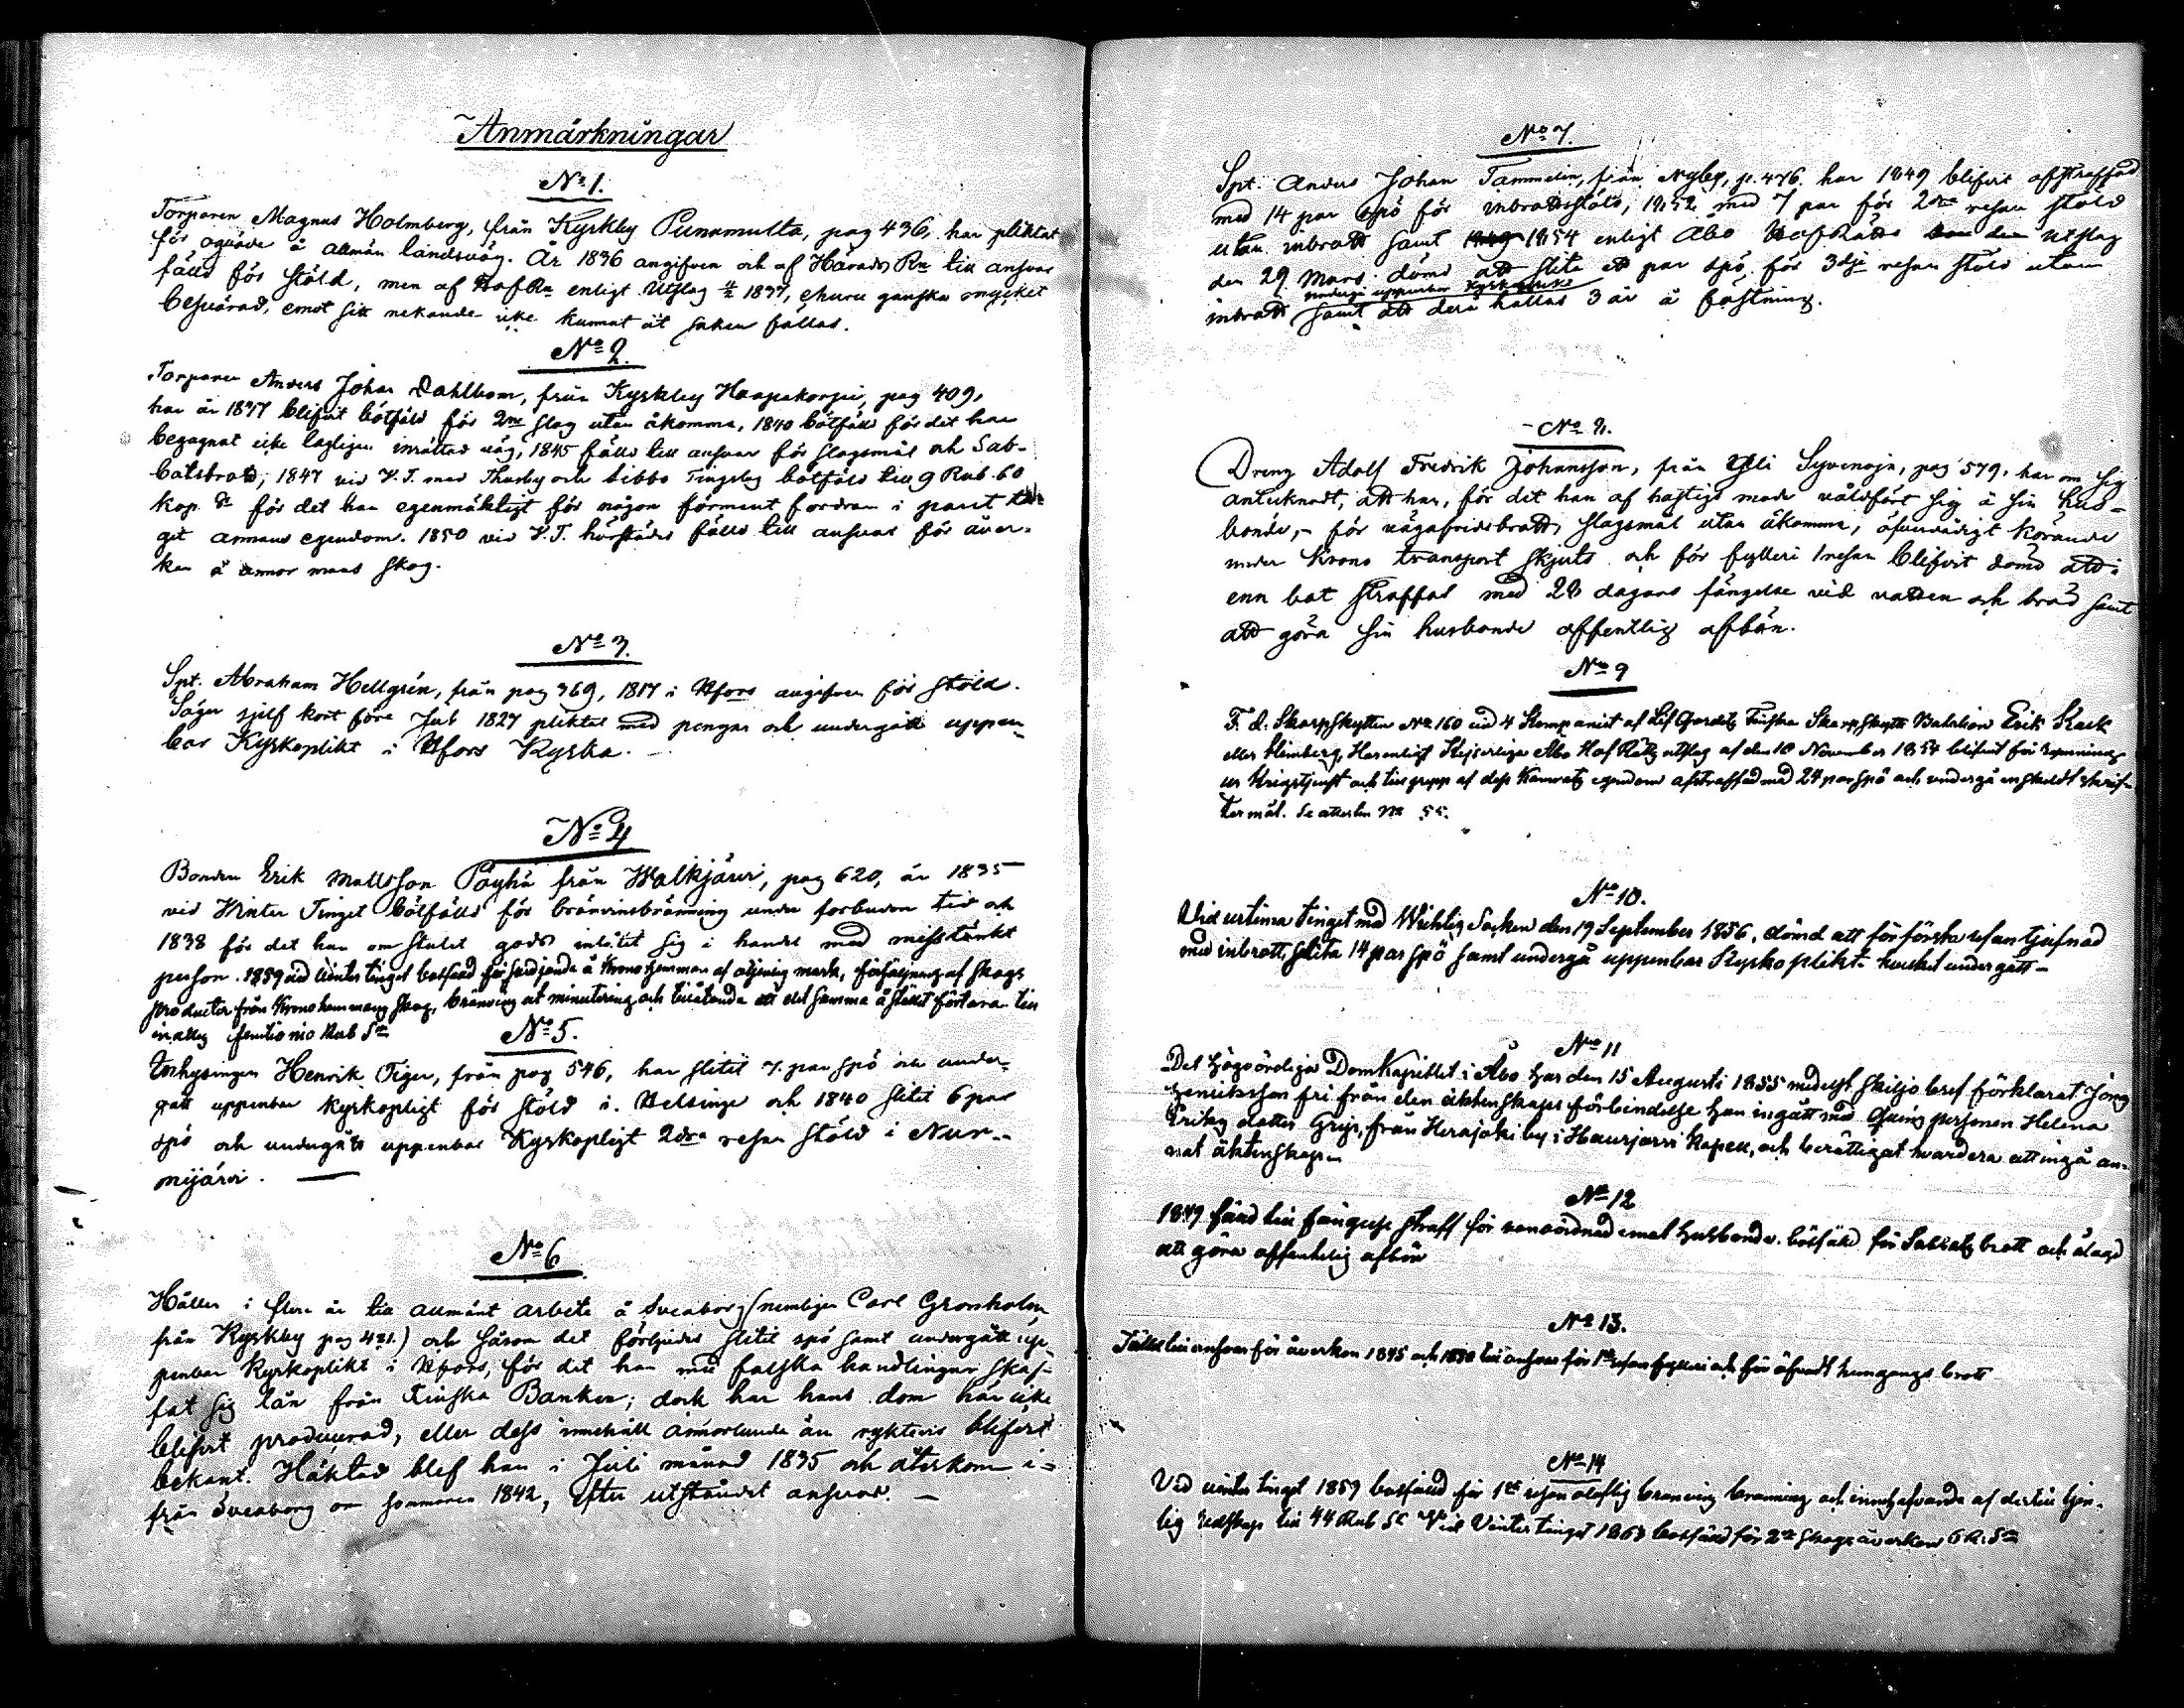 Anmärkningar
No 1.
Torparen Magnus Holmberg, från Kyrkby Punamulta, pag 436, har pliktat
för ogväde å allmän landsväg. År 1836 angifven och af Härads Rn till ansvar
fälld för stöld, men af HofRn enligt Utslag 1837, ehuru ganska mycket
besvärad, emot sitt nekande icke kunnat åt saken fällas.
No 2.
Torparen Anders Johan Dahlbom, från Kyrkby Haapakorpi, pag 409,
har år 1837 blifvit bötfäld för 2ne slag utan åkomma, 1840 bötfälld för det han
begagnat icke lagligen inrättad väg, 1845 fälld till ansvar för slagsmål och Sab-
batsbrott, 1847 vid V. T. med Thusby och Sibbo Tingslag bötfäld till 9 Rub. 60
kop. Sr för det han egenmäktigt för någon förment fordran i pant ta-
git annans egendom. 1850 vid V. T. härstädes fälld till ansvar för åver-
kan å annor mans skog.
No 3.
Spt. Abraham Hellgrén, från pag 369, 1817 i Hfors angifven för stöld.
Säger sjelf kort före Jul 1827 pliktat med pengar och undergått uppen-
bar Kyrkoplikt i Hfors Kyrka.
No 4
Bonden Erik Mattsson Pöyhä från Walkjärvi, pag 620, år 1835
vid Vinter Tinget bötfälld för bränvinsbränning under förbuden tid och
1838 för det han om stulet gods inlåtit sig i handel med misstänkt
person. 1859 vid Vinter tinget botfäld för svedjande å Kronohemman af otjenlig mark, försäljning af skogs
producter från Kronohemmans skog, bränvins ut minutering och tillåtande att det samma å stället förtäras till
inalles femtio nio Rub Sr
No 5.
Inhysingen Henrik Tiger, från pag 546, har slitit 7. par spö och under-
gått uppenbar kyrkopligt för stöld i Helsinge och 1840 slitit 6 par
spö och undergått uppenbar Kyrkopligt 2dra resan stöld i Nur-
mijärvi.
No 6
Hållen i flere år till allmänt arbete å Sveaborg (nemligen Carl Gronholm
från Kyrkby pag 421.) och såsom det förljudes slitit spö samt undergått up-
penbar Kyrkoplikt i Hfors, för det han med falska handlingar skaf-
fat sig lån från Finska Banken; dock har hans dom här icke
blifvit producerad, eller dess innehåll annorlunda än ryktevis blifvit
bekant. Häktad blef han i Juli månad 1835 och återkom i-
från Sveaborg om sommaren 1842, efter utståndet ansvar.
No 7.
Spt. Anders Johan Tammelin, från Nyby, p. 476, har 1849 blifvit afstraffad
med 14 par spö för inbrottsstöld, 1852 med 7 par för 2dra resan stöld
utan inbrott samt 1854 enligt Åbo HofRätts utslag
den 29 Mars dömd att slita ett par spö för 3dje resan stöld utan
undergå uppenbar Kyrkoplikt
inbrott samt att derå hållas 3 år å fästning.
No 8.
Dreng Adolf Fredrik Johansson, från Yli Syvenoja, pag 579, har om sig
antecknadt, att han, för det han af hastigt mode våldfört sig å sin hus-
bonde, för vägafridsbrott, slagsmål utan åkomma, ofverdådigt körande
under Krono transport skjuts och för fylleri 1 resan blifvit dömd att i
enn bot straffas med 28 dagars fängelse vid vatten och bröd samt
att göra sin husbonde offentlig afbön.
No 9
F. d. Skarpskytten No 160 vid 4 Kompaniet af Lif Gardets Finska Skarpskytte Bataljon Erik Stark
eller Limberg, Har enligt Kejserliga Åbo Hof Rätts utslag af den 10 November 1854 blifvit för rymning
ur Krigstjenst och tillgrepp af dess Kamrats egendom afstraffad med 24 par spö och undergå enskildt skrif-
termål. Se attesten No 55.
No 10.
Vid urtima tinget med Wichtis Socken den 19 September 1856, dömd att för första resan tjufnad
med inbrott, slita 14 par spö samt undergå uppenbar Kyrko plikt hvilket undergått
No 11
Det högvördiga DomKapitlet i Åbo har den 15 Augusti 1855 medelst skiljo bref förklarat Jong
Henriksson fri från den äktenskaps förbindelse han ingått med qvins personen Helena
Eriks dotter Grip, från Herajoki by i Hausjärvi kapell, och berättigat hvardera att ingå an-
nat äktenskap
No 12
1849 fälld till fängelse straff för vanvördnad emot husbonde. bötfäld för Sabbats brott och ålagd
att göra offentelig afbön
No 13.
Fälld till ansvar för åverkan 1845 och 1850 till ansvar för 1sta resan fylleri och för öfvadt hemgångs brott
No 14
Vid vinter tinget 1859 botfälld för 1sta resan olaflig bränvins bränning och innehafvande af dertill tjen-
lig redskap till 44 Rub Sr Vid Vinter tinget 1863 botfälld för 2ra skogs åverkan 6 R. Sr